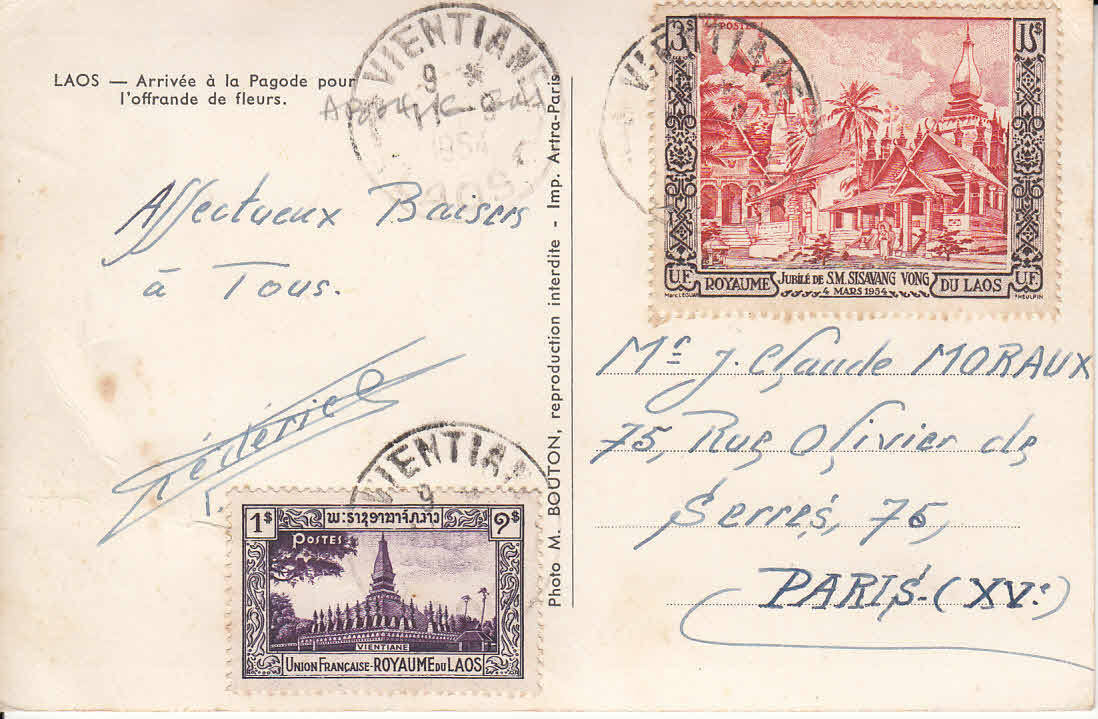 LAOS — Arrivée à la Pagode pour
l'offrande de fleurs.
VIENTIANE
9 *
1954
LAOS
Affectueux Baisers
à Tous.
Photo M. BOUTON, reproduction interdite - Imp. Artra-Paris
VIENTIANE
3$ POSTES
U.F. ROYAUME JUBILÉ DE S.M. SISAVANG VONG DU LAOS U.F.
4 MARS 1954
Mr J. Claude MORAUX
75, Rue Olivier de
Serres, 75,
PARIS-(XVe)
VIENTIANE
9
1$ ໑$
POSTES
VIENTIANE
UNION FRANÇAISE-ROYAUME DU LAOS